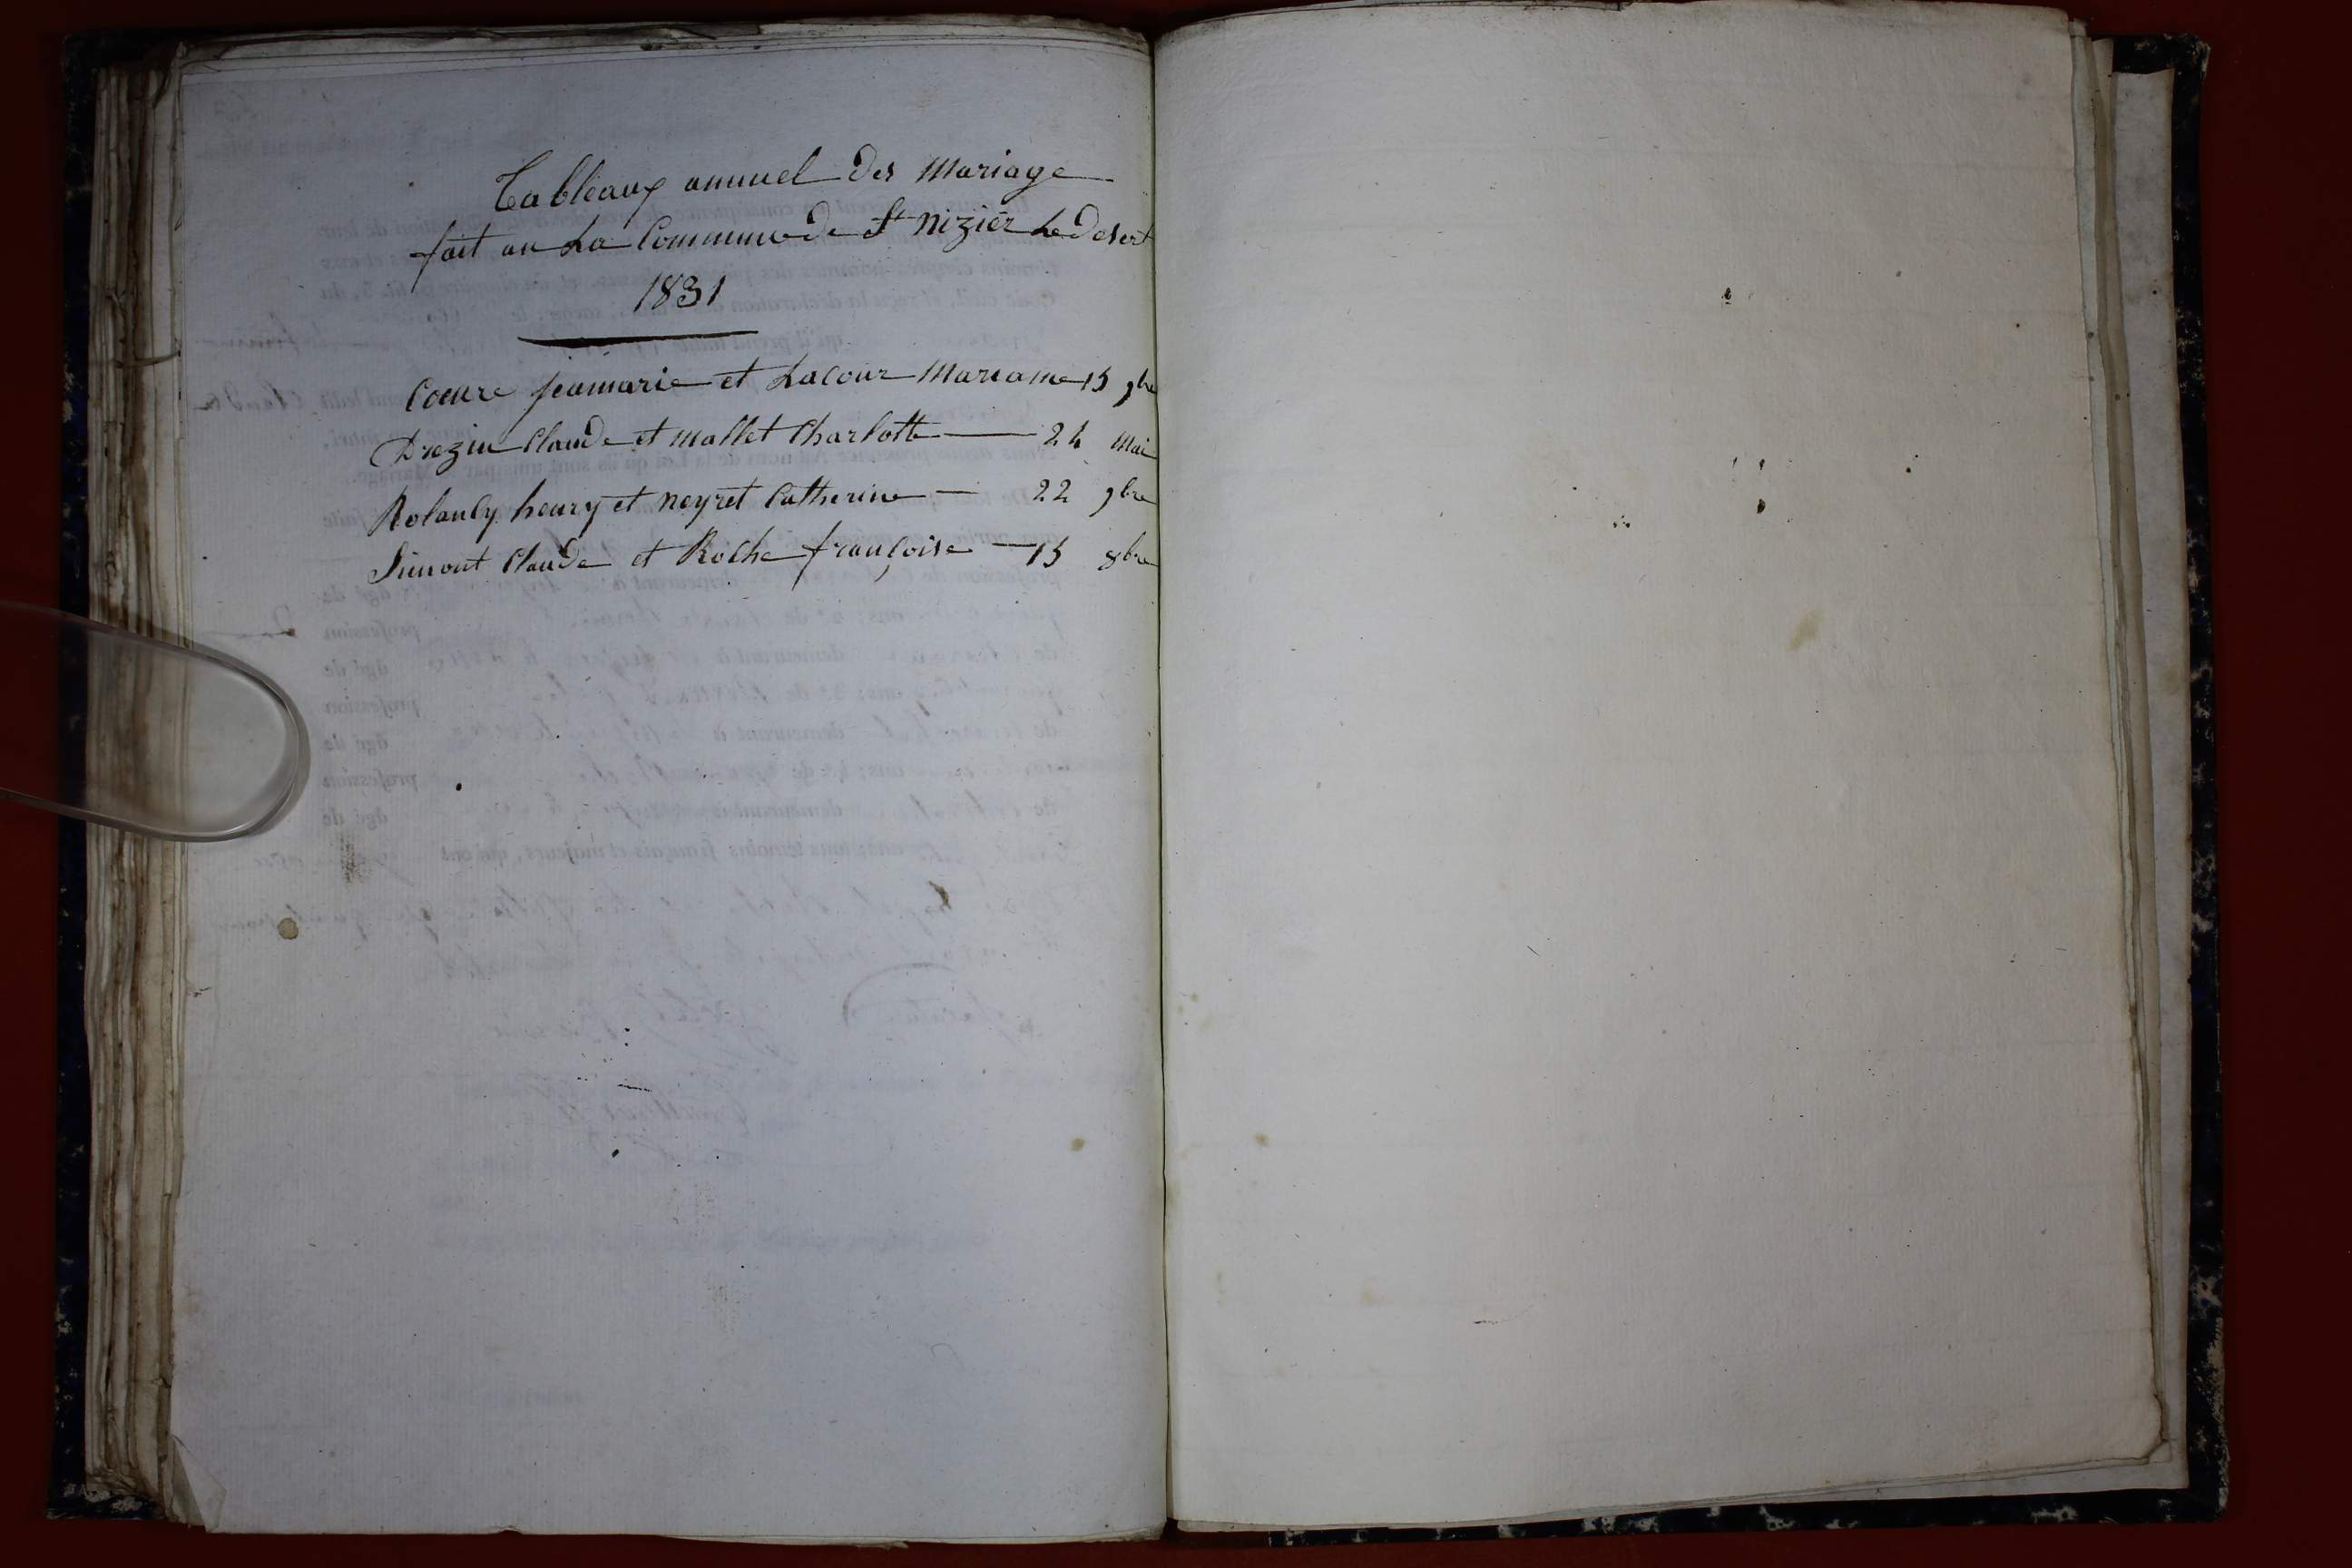 Tableaux annuel des Mariage
fait an La Commune de St nizier Le Desert
1831
Coeure jeanmarie et Lacour Marianne 15 9bre
Drezin Claude et mallet Charlotte — 24 Mai
henry et neyret Catherine — 22 9bre
Simont Claude et Roche françoise — 15 8bre